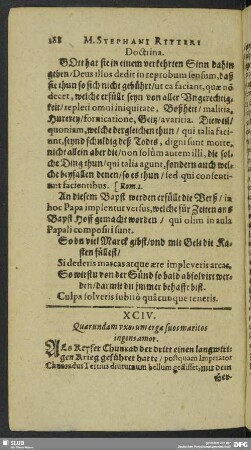 188 M. STEPHANI RITTERI
Doctrina.
GOtt hat sie in einem verkehrten Sinn dahin
geben/ Deus illos dedit in reprobum sensum, daß
sie thun so sich nicht gebührt/ ut ea faciant, quæ nō
decet, welche erfüllt seyn von aller Ungerechtig-
keit/ repleti omni iniquitate, Boßheit/ malitia,
Hurerey/ fornicatione, Geitz/ avaritia. Dieweil/
quoniam, welche dergleichen thun/ qui talia faci-
unt, seynd schuldig deß Todts, digni sunt morte,
nicht allein aber die/ non solùm autem illi, die sol-
che Ding thun/ qui talia agunt, sondern auch wel-
che beyfallen denen/ so es thun/ sed qui consenti-
unt facientibus. [Rom. 1.
An diesem Bapst werden erfüllt die Verß/ in
hoc Papa implentur versus, welche für Zeiten an
Bapst Hoff gemacht worden/ qui olim in aula
Papali compositi sunt.
So du viel Marck gibst/ und mit Gelt die Ka-
sten füllest/
Si dederis marcas atque ære impleveris arcas,
So wirstu von der Sünd so bald absolvirt wer-
den/ darmit du immer behafft bist.
Culpa solveris subitò quacunque teneris.
XCIV.
Quarundam uxorum erga suos maritos
ingens amor.
ALs Keyser Chunrad der dritt einen langwiri-
gen Krieg geführet hatte/ postquam Imperator
Chunradus Tertius diuturnum bellum gessisset, mit dem
SLUB